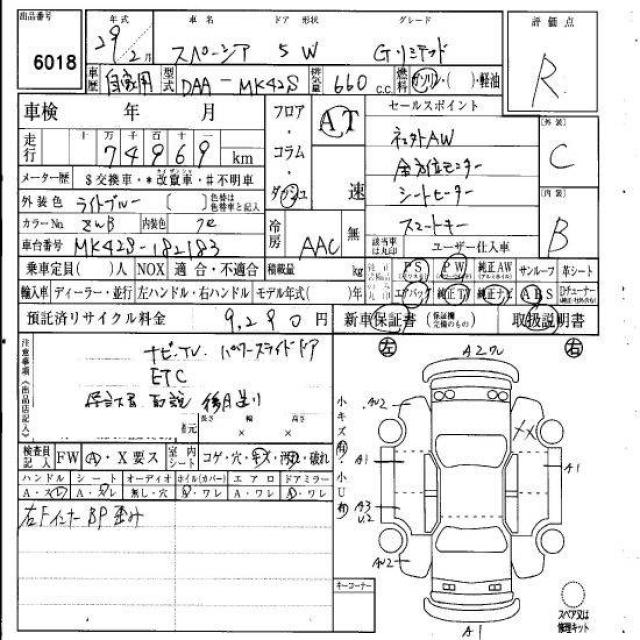 出品番号 年式 車名 ドア 形状 グレード 評価点
6018 29 2月 スペーシア 5 W Gリミテッド R
車歴 自家用 型式 DAA-MK42S 排気量 660 c.c. 燃料 ガソリン・( )・軽油
車検 年 月 フロア・コラム・ダッシュ AT 速 セールスポイント 外装 C
走行 十万千百十 74969 km 社外AW
メーター歴 $交換車・*改竄車・#不明車 全方位モニター
外装色 ライトブルー [ ] 色替は色替車と記入 シートヒーター 内装 B
カラーNo. ZWB 内装色 スマートキー
車台番号 MK42S-182183 冷房 AAC 無 該当車は丸印 ユーザー仕入車
乗車定員( )人 NOX 適合・不適合 積載量 kg PS PW 純正AW サンルーフ 革シート
輸入車 ディーラー・並行 左ハンドル・右ハンドル モデル年式( )年 エアバッグ 純正TV 純正ナビ ABS
預託済リサイクル料金 9,290円 新車保証書 (保証継定備のもの) 取扱説明書
注意事項(出品店記入) ナビ.TV. パワースライドドア
ETC
保証書 取説 後日送り
長さ 幅 高さ
× ×
検査員記入 FW A・X要ス 室内シート コゲ・穴・キズ・汚れ・破れ
ハンドル シート オーディオ ホイル(カバー) エアロ ドアミラー
A・スレ A・スレ 無し・穴 A・ワレ A・ワレ A・ワレ
右FインナーBP歪み
キーコーナー
左 右
小キズ有・小U有
A2ワレ
AU2
XX
A1 A1
A3
U2
AU2
A1
スペア又は
修理キット